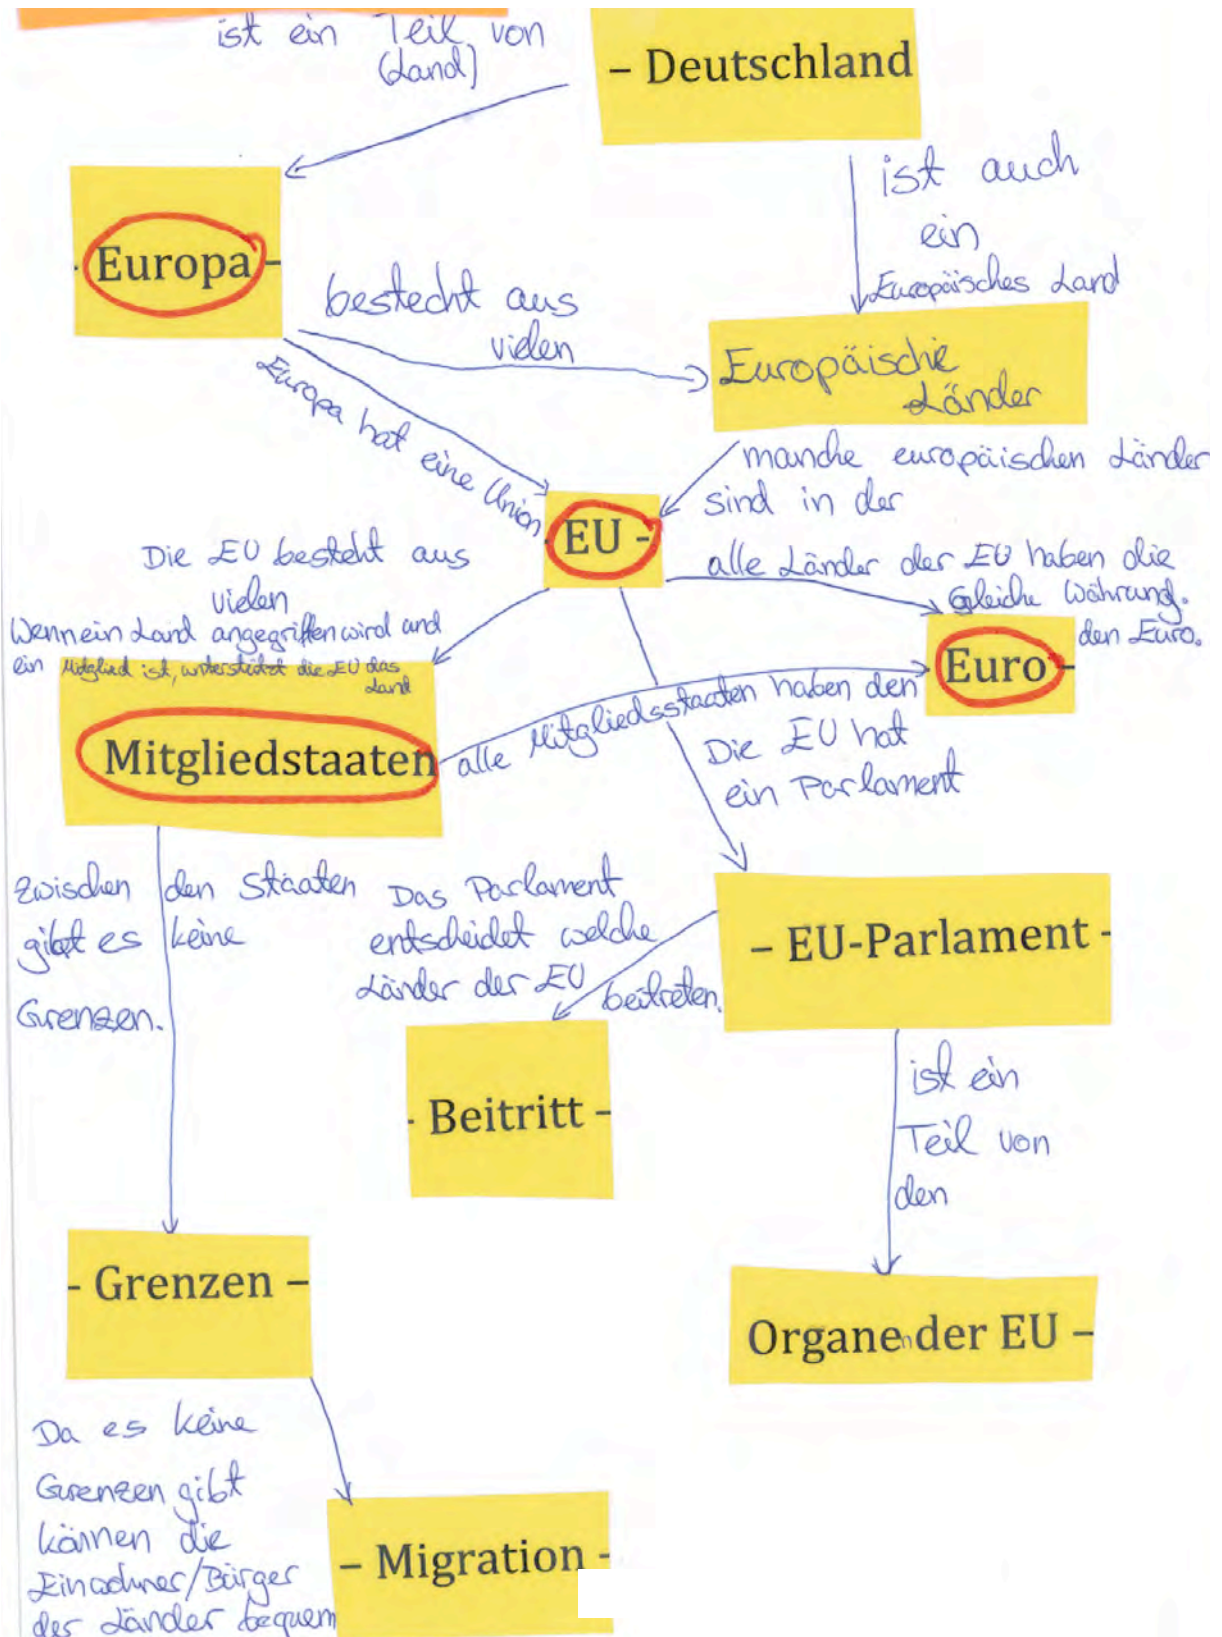 ist ein Teil von
(Land)
– Deutschland
ist auch
ein
Europäisches Land
- Europa -
besteht aus
vielen
Europäische
Länder
Europa hat eine Union
manche europäischen Länder
sind in der
EU -
Die EU besteht aus
vielen
alle Länder der EU haben die
Gleiche Währung.
den Euro.
Wenn ein Land angegriffen wird und
ein Mitglied ist, unterstützt die EU das
Land
Euro -
Mitgliedstaaten
alle Mitgliedsstaaten haben den
Die EU hat
ein Parlament
zwischen den Staaten
gibt es keine
Grenzen.
Das Parlament
entscheidet welche
Länder der EU beitreten.
– EU-Parlament -
- Beitritt -
ist ein
Teil von
den
- Grenzen –
Organen der EU –
Da es keine
Grenzen gibt
können die
Einwohner/Bürger
der Länder bequem
– Migration -